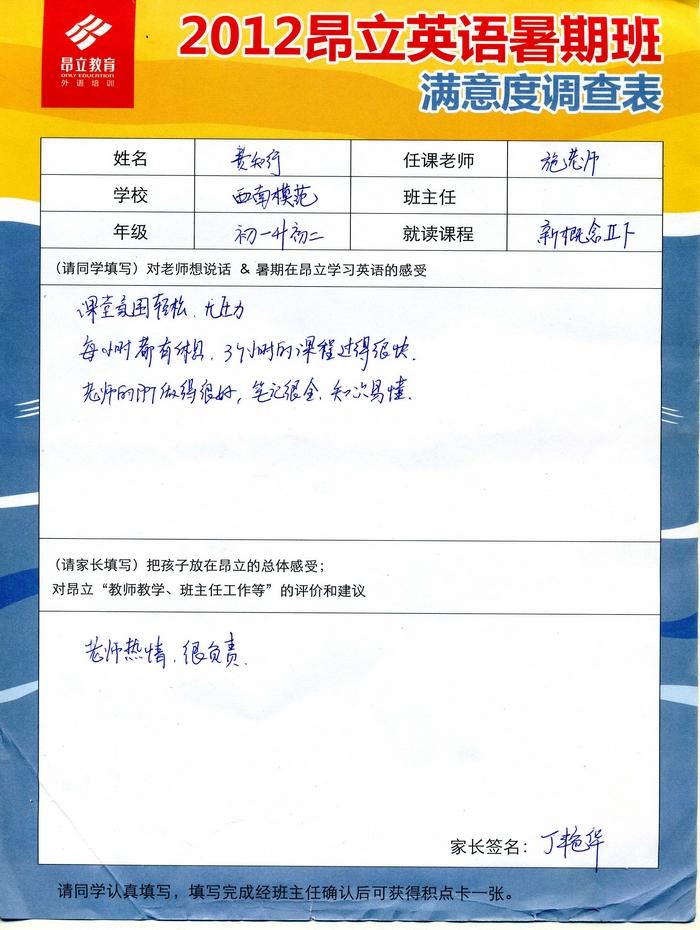 昂立教育
ONLY EDUCATION
外语培训
2012昂立英语暑期班
满意度调查表
姓名 费知行 任课老师 施老师
学校 西南模范 班主任
年级 初一升初二 就读课程 新概念II下
(请同学填写)对老师想说话 & 暑期在昂立学习英语的感受
课堂氛围轻松,无压力
每小时都有休息,3个小时的课程过得很快.
老师的PPT做得很好,笔记很全,知识易懂.
(请家长填写)把孩子放在昂立的总体感受;
对昂立“教师教学、班主任工作等”的评价和建议
老师热情,很负责.
家长签名: 丁艳华
请同学认真填写,填写完成经班主任确认后可获得积点卡一张。